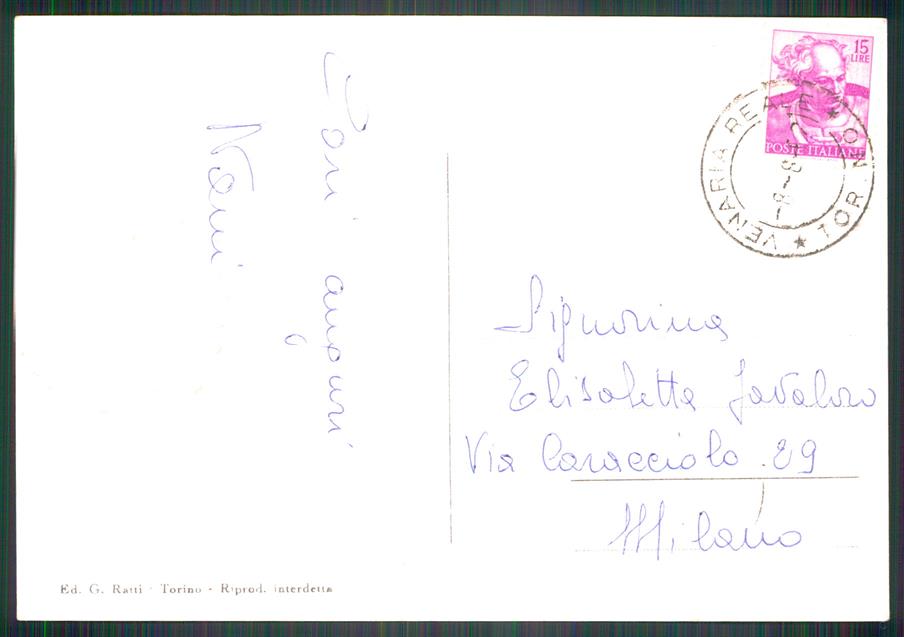 Cari auguri
Nani
15
LIRE
POSTE ITALIANE
VENARIA REALE ★ TORINO ★
Signorina
Elisabetta
Via Caracciolo 29
Milano
Ed. G. Ratti - Torino - Riprod. interdetta